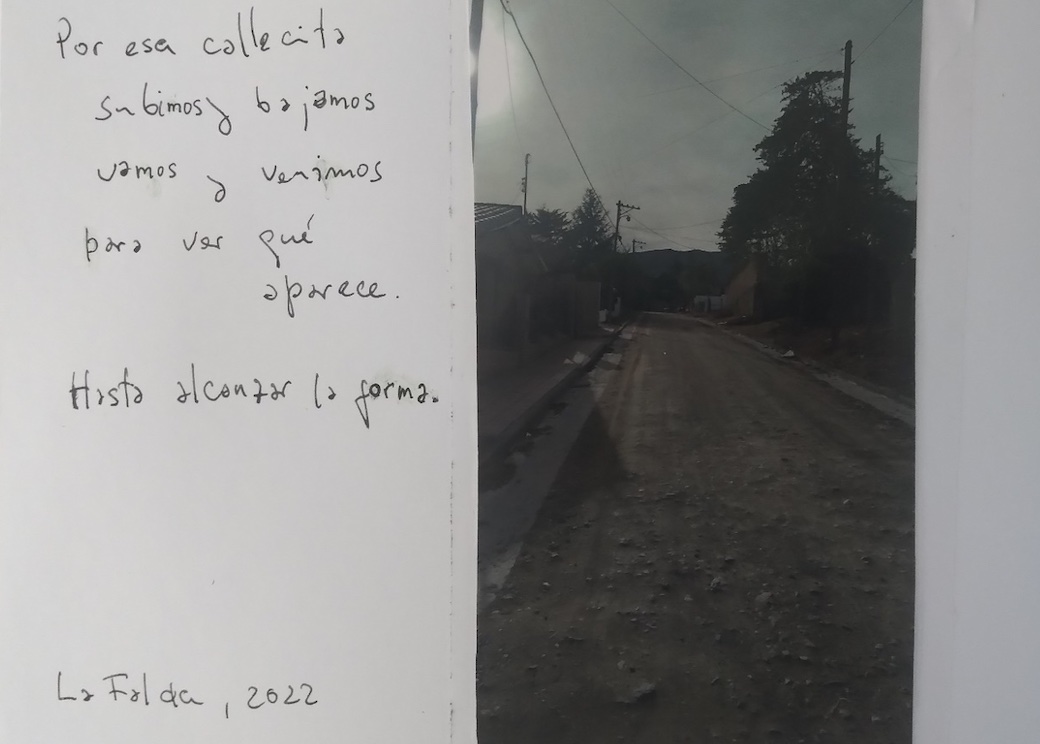 Por esa callecita
subimos y bajamos
vamos y venimos
para ver qué
aparece.
Hasta alcanzar la forma.
La Falda, 2022